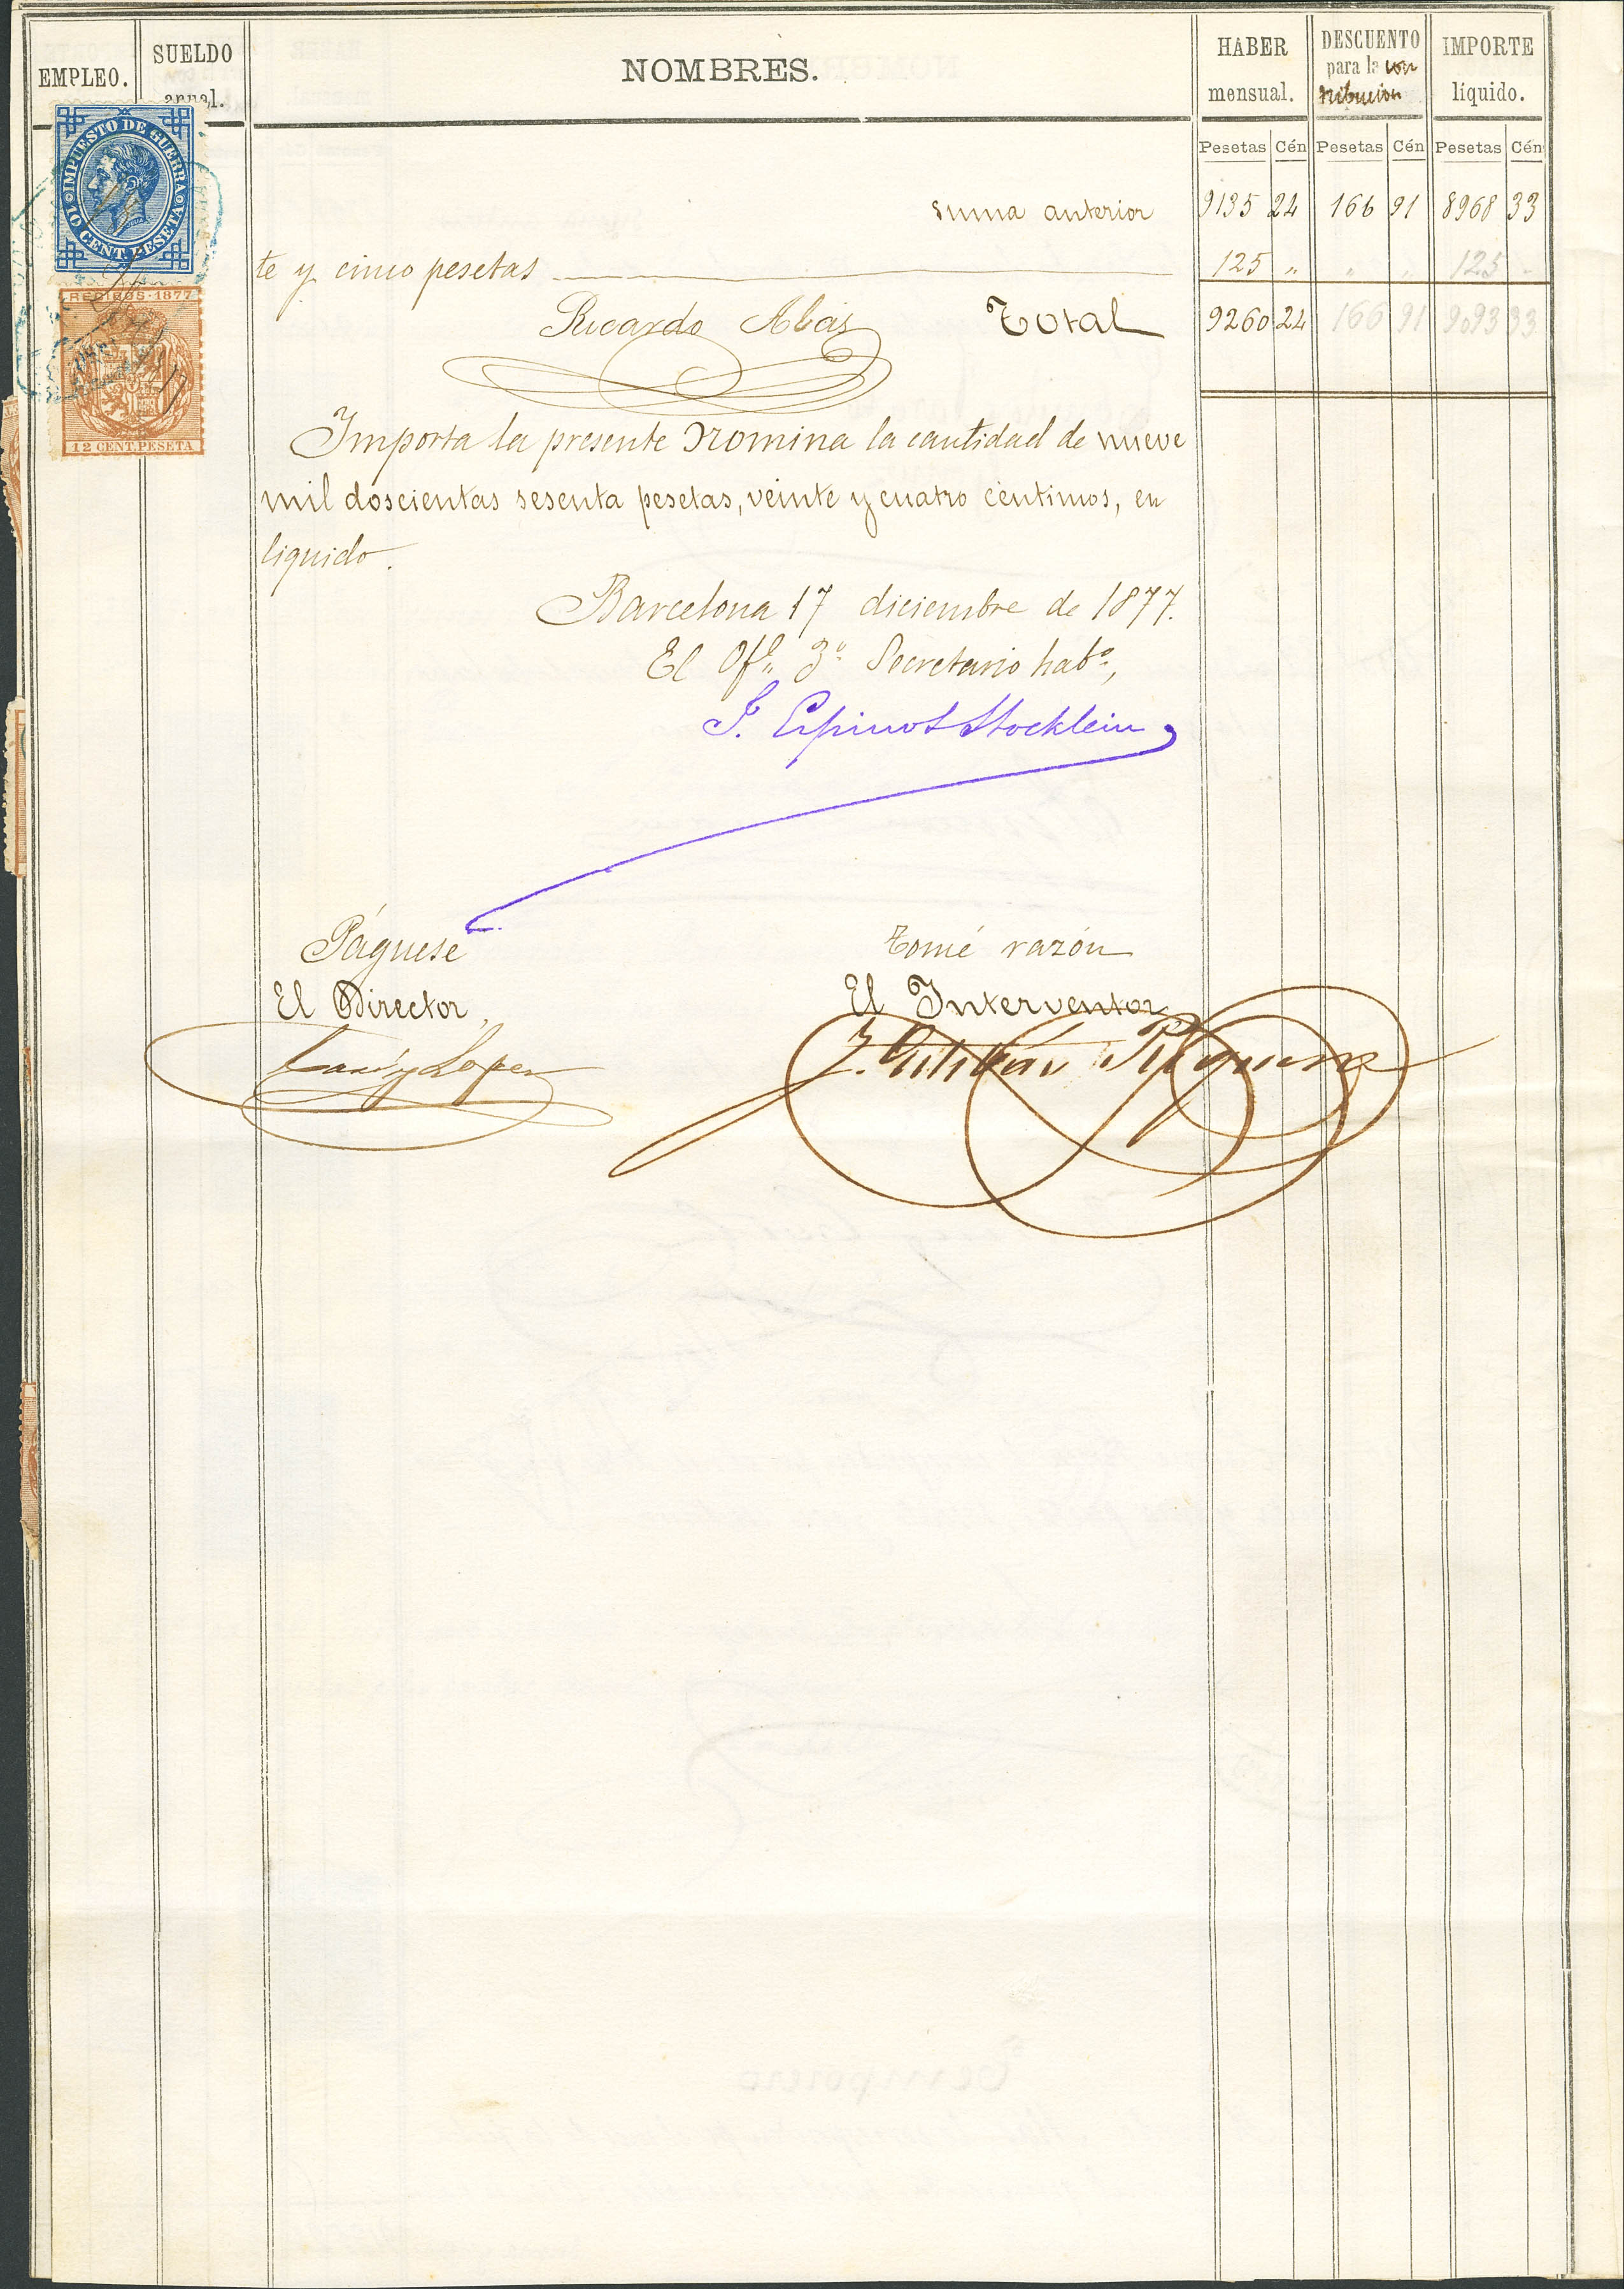 EMPLEO.
SUELDO
anual.
NOMBRES.
HABER
mensual.
DESCUENTO
para la con
tribucion
IMPORTE
líquido.
Pesetas Cén Pesetas Cén Pesetas Cén
IMPUESTO DE GUERRA
10 CENT. PESETA
suma anterior 9135 24 166 91 8968 33
te y cinco pesetas 125 „ „ „ 125 „
RECIBOS·1877
12 CENT. PESETA
Ricardo Abás Total 9260 24 166 91 9093 33
Importa la presente Nomina la cantidad de nueve
mil doscientas sesenta pesetas, veinte y cuatro céntimos, en
liquido.
Barcelona 17 diciembre de 1877.
El Ofl. 3º Secretario habº,
J. Espinos Stocklein
Páguese
tomé razón
El Director,
El Interventor
y Lopez
J.